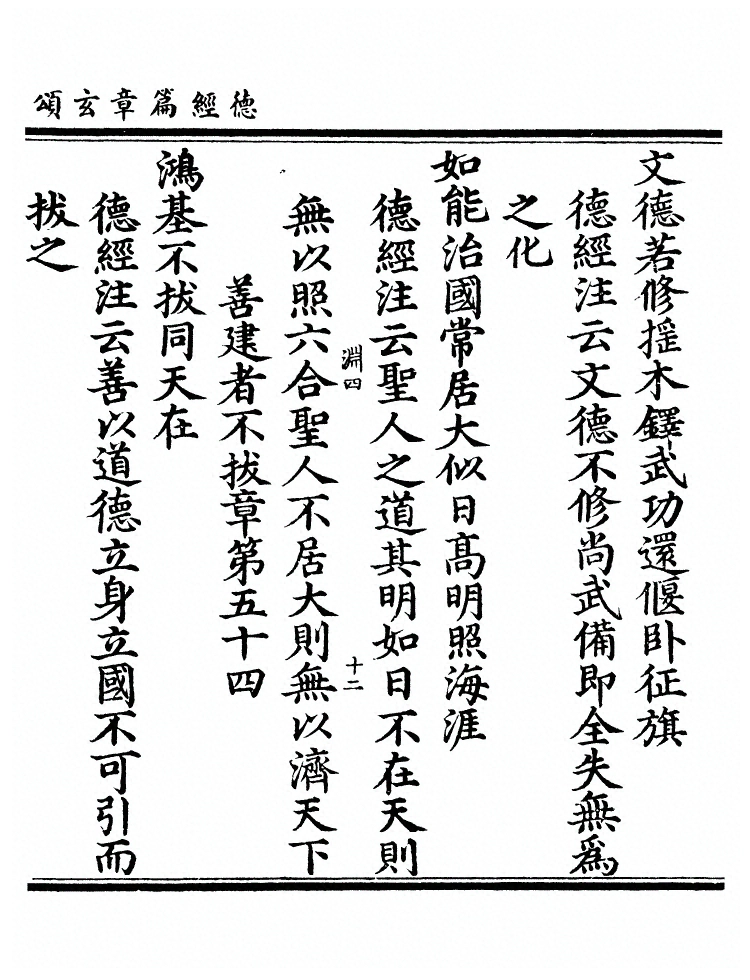 德經篇章玄頌
文德若修揺木鐸武功還偃卧征旗
德經注云文德不修尚武備即全失無爲
之化
如能治國常居大似日髙明照海涯
德經注云聖人之道其明如日不在天則
淵四
十二
無以照六合聖人不居大則無以濟天下
善建者不拔章第五十四
鴻基不拔同天在
德經注云善以道德立身立國不可引而
拔之